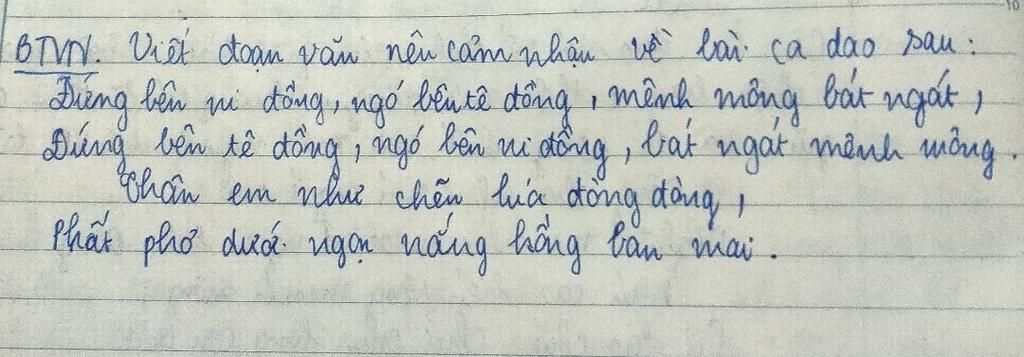 BTVN. Viết đoạn văn nên cảm nhận về bài ca dao sau:
Đứng bên ni đồng, ngó bên tê đồng, mênh mông bát ngát,
Đứng bên tê đồng, ngó bên ni đồng, bát ngát mênh mông.
Thân em như chẽn lúa đòng đòng,
Phất phơ dưới ngọn nắng hồng ban mai.